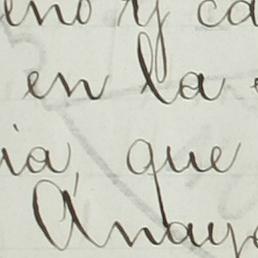 eno y ca
en la
ia, que
Anay